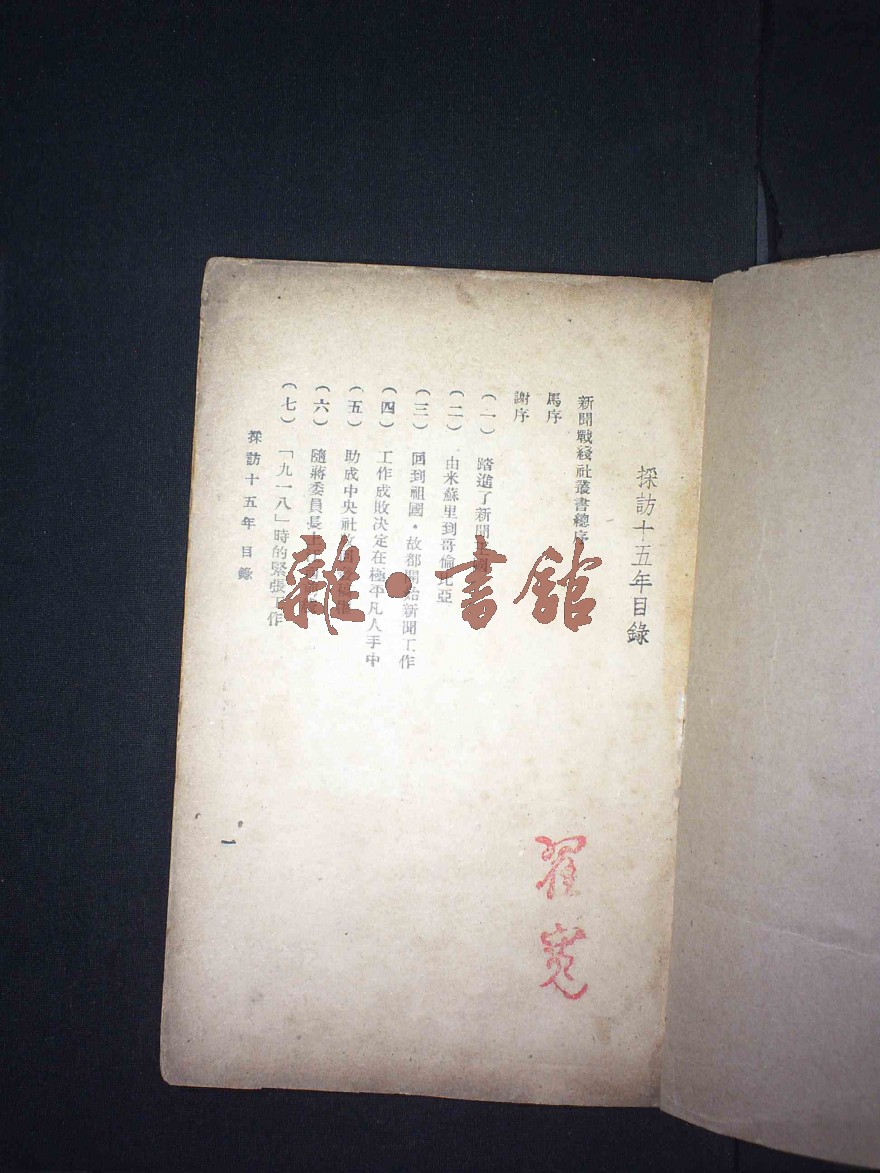 採訪十五年目錄
新聞戰綫社叢書總序
馬序
謝序
(一) 踏進了新聞
(二) 由米蘇里到哥倫比亞
(三) 回到祖國・故都開始新聞工作
(四) 工作成敗决定在極平凡人手中
(五) 助成中央社
(六) 隨蔣委員長
(七) 「九一八」時的緊張工作
採訪十五年 目錄
一
雜・書館
翟寛